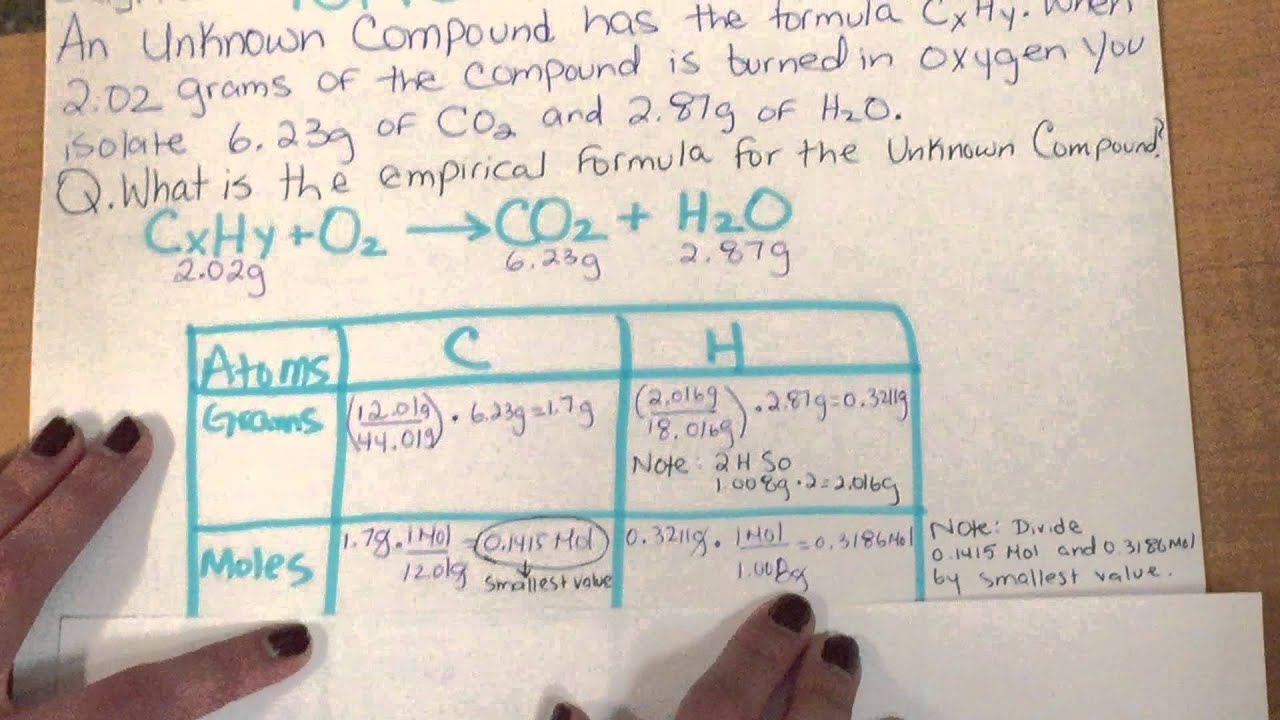 An Unknown Compound has the formula CxHy. When
2.02 grams of the compound is burned in oxygen you
isolate 6.23g of CO2 and 2.87g of H2O.
Q. What is the empirical formula for the Unknown Compound?
CxHy + O2 → CO2 + H2O
2.02g 6.23g 2.87g
Atoms C H
Grams (12.01g/44.01g) · 6.23g = 1.7g (2.016g/18.016g) · 2.87g = 0.3211g
Note: 2H So
1.008g · 2 = 2.016g
Moles 1.7g · 1 Mol/12.01g = 0.1415 Mol 0.3211g · 1 Mol/1.008g = 0.3186 Mol
smallest value
Note: Divide
0.1415 Mol and 0.3186 Mol
by smallest value.